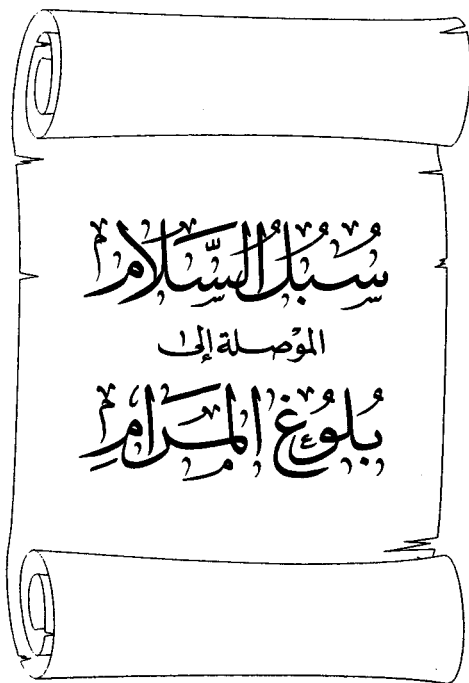 سُبُلُ السَّلَام
الموْصلة إلى
بُلُوغ المَرَامِ